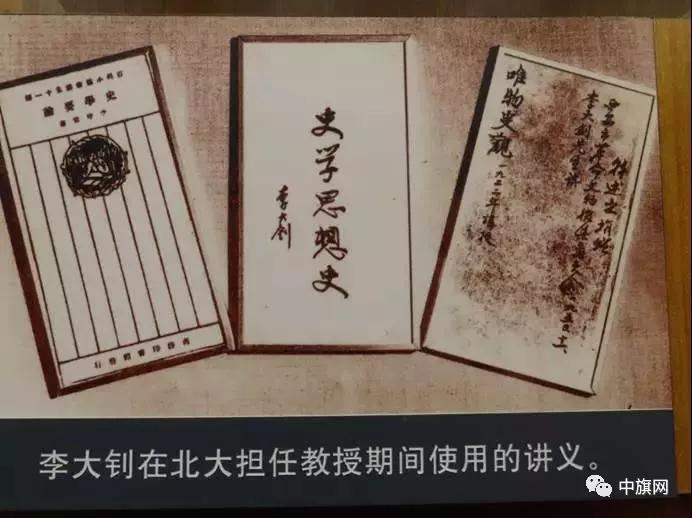 百科小叢書第五十一種
史學要論
李守常著
商務印書館發行
史学思想史
李大釗
唯物史觀
一九二三年
李大釗先生講
徐述之捐贈
李大钊在北大担任教授期间使用的讲义。
中旗网